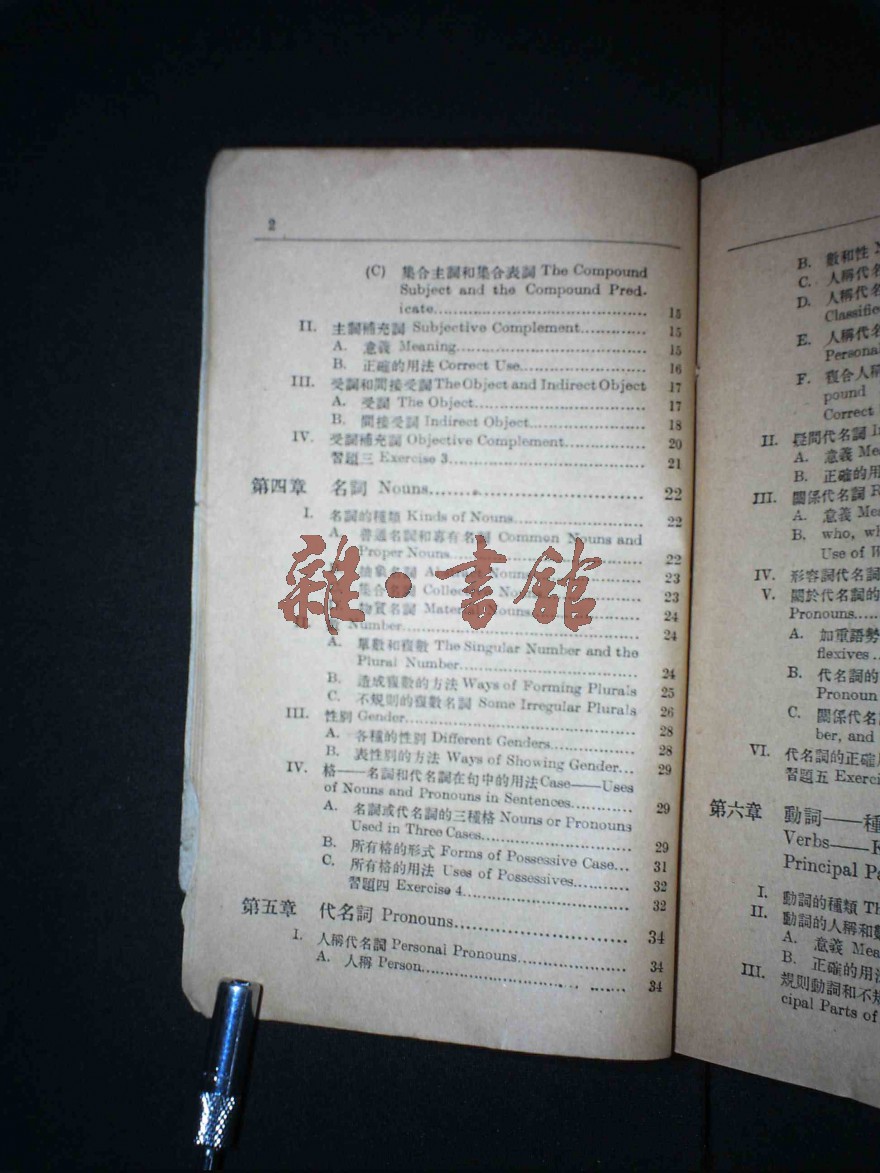 2
(C) 集合主詞和集合表詞 The Compound
Subject and the Compound Pred-
icate 15
II. 主詞補充詞 Subjective Complement 15
A. 意義 Meaning 15
B. 正確的用法 Correct Use 16
III. 受詞和間接受詞 The Object and Indirect Object 17
A. 受詞 The Object 17
B. 間接受詞 Indirect Object 18
IV. 受詞補充詞 Objective Complement 20
習題三 Exercise 3 21
第四章 名詞 Nouns 22
I. 名詞的種類 Kinds of Nouns 22
A. 普通名詞和專有名詞 Common Nouns and
Proper Nouns 22
抽象名詞 Abstract Nouns 23
集合名詞 Collective Nouns 23
物質名詞 Material Nouns 24
Number 24
雜·書館
A. 單數和複數 The Singular Number and the
Plural Number 24
B. 造成複數的方法 Ways of Forming Plurals 25
C. 不規則的複數名詞 Some Irregular Plurals 26
III. 性別 Gender 28
A. 各種的性別 Different Genders 28
B. 表性別的方法 Ways of Showing Gender 29
IV. 格——名詞和代名詞在句中的用法 Case——Uses
of Nouns and Pronouns in Sentences 29
A. 名詞或代名詞的三種格 Nouns or Pronouns
Used in Three Cases 29
B. 所有格的形式 Forms of Possessive Case 31
C. 所有格的用法 Uses of Possessives 32
習題四 Exercise 4 32
第五章 代名詞 Pronouns 34
I. 人稱代名詞 Personal Pronouns 34
A. 人稱 Person 34
B. 數和性
C. 人稱代名
D. 人稱代名
Classifie
E. 人稱代名
Persona
F. 複合人稱
pound
Correct
II. 疑問代名詞
A. 意義 Me
B. 正確的用
III. 關係代名詞
A. 意義 Me
B. who, wh
Use of W
IV. 形容詞代名詞
V. 關於代名詞的
Pronouns
A. 加重語勢
flexives
B. 代名詞的
Pronoun
C. 關係代名
ber, and
VI. 代名詞的正確
習題五 Exerci
第六章 動詞——種
Verbs——K
Principal Pa
I. 動詞的種類 Th
II. 動詞的人稱和數
A. 意義 Mea
B. 正確的用法
III. 規則動詞和不規
cipal Parts of